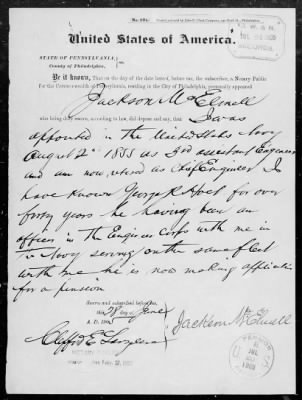 United States of America.
STATE OF PENNSYLVANIA,
County of Philadelphia.
Be it known, That on the day of the date hereof, before me, the subscriber, a Notary Public
for the Commonwealth of Pennsylvania, residing in the City of Philadelphia, personally appeared
Jackson McElmell
who being duly sworn, according to law, did depose and say, that I was
appointed in the United States Navy
August 2d 1855 as 3rd assistant Engineer
and am now retired as Chief Engineer I
have known George R Holt for over
forty years he having been an
officer in the Engineer Corps with me in
the Navy serving on the same fleet
with me he is now making application
for a pension
Sworn and subscribed before me
this 28 day of June
A. D. 190
Jackson McElmell
Clifford E
NOTARY PUBLIC